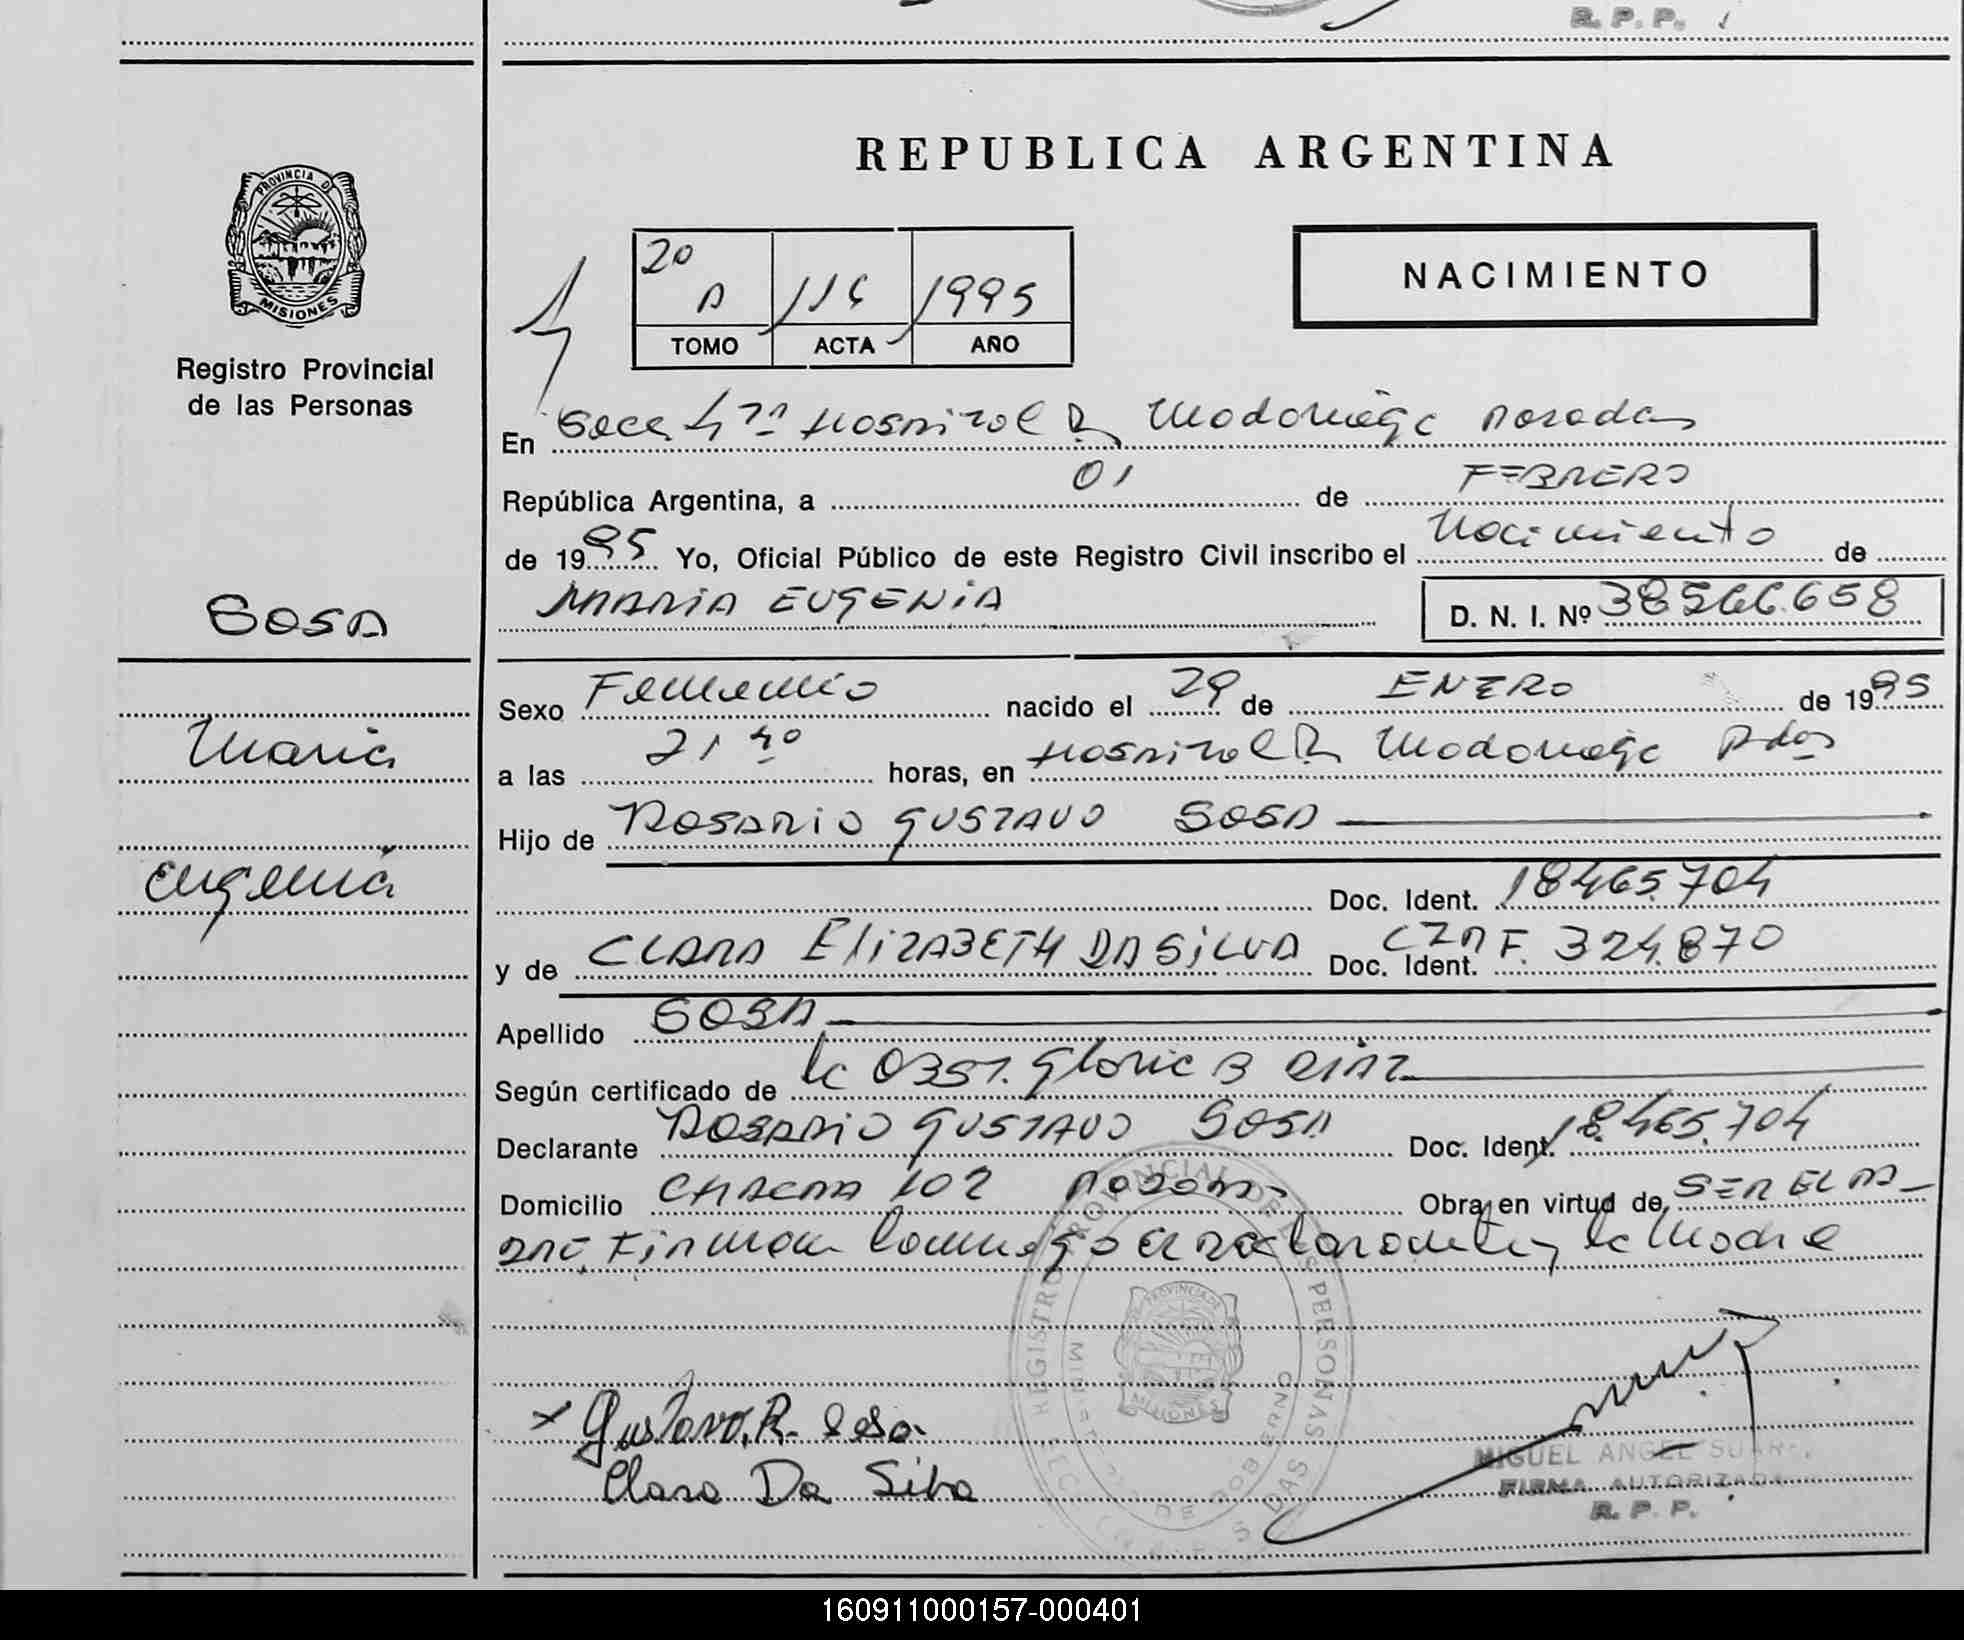 R. P. P.
PROVINCIA DE
MISIONES
Registro Provincial
de las Personas
SOSA
Maria
Eugenia
REPUBLICA ARGENTINA
20
A 116 1995
TOMO ACTA AÑO
NACIMIENTO
En Secc. 4 7ª Hospital Dr Madariaga Posadas
República Argentina, a 01 de FEBRERO
de 1995 Yo, Oficial Público de este Registro Civil inscribo el Nacimiento de
MARIA EUGENIA D. N. I. Nº 38566.658
Sexo Femenino nacido el 29 de ENERO de 1995
a las 21 40 horas, en Hospital Dr Madariaga Pdas
Hijo de ROSARIO GUSTAVO SOSA
Doc. Ident. 18465.704
y de CLARA ELIZABETH DA SILVA Doc. Ident. CZA F. 324.870
Apellido SOSA
Según certificado de la OBST. Gloria B DIAZ
Declarante ROSARIO GUSTAVO SOSA Doc. Ident. 18.465.704
Domicilio CHACRA 102 Posadas Obra en virtud de SER EL PA-
DRE. Firman conmigo el declarante y la Madre
REGISTRO PROVINCIAL DE LAS PERSONAS
MINISTERIO DE GOBIERNO
PROVINCIA DE
MISIONES
x Gustavo. R. Sosa.
Clara Da Silva
MIGUEL ANGEL SUAR
FIRMA AUTORIZADA
R. P. P.
160911000157-000401